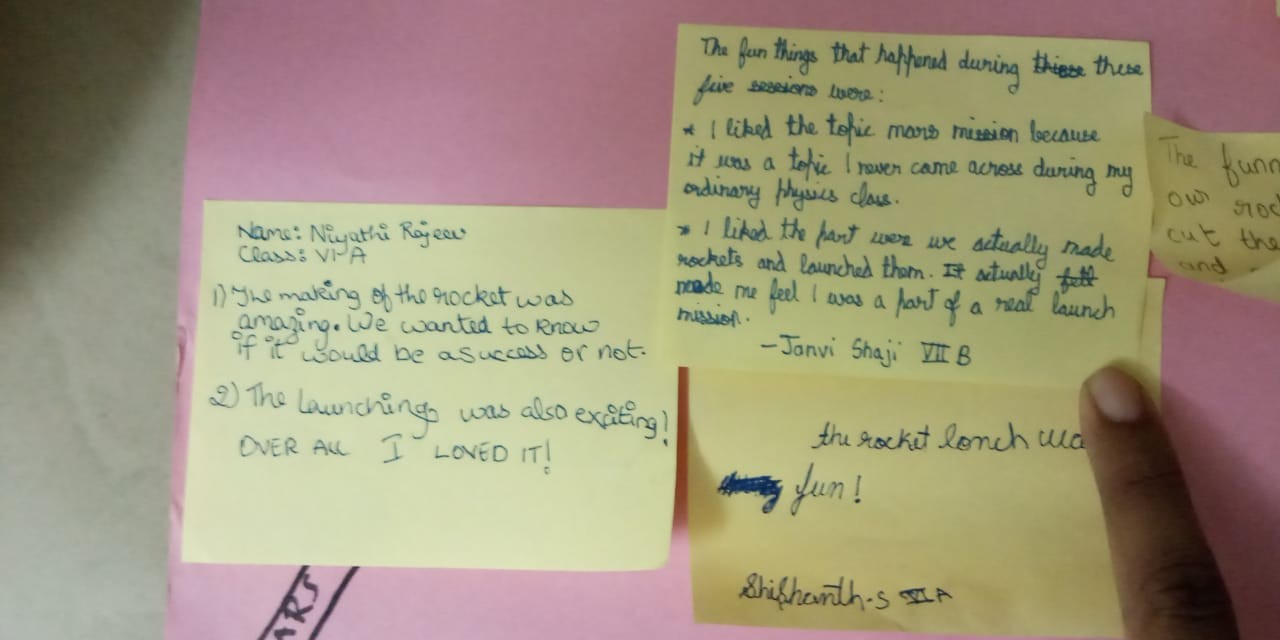 Name: Niyathi Rajeev
Class: VI A
1) The making of the rocket was
amazing. We wanted to know
if it would be a success or not.
2) The launchings was also exciting!
OVER ALL I LOVED IT!
The fun things that happened during these these
five sessions were:
* I liked the topic mars mission because
it was a topic I never came across during my
ordinary physics class.
* I liked the part were we actually made
rockets and launched them. It actually felt
made me feel I was a part of a real launch
mission.
- Janvi Shaji VII B
the rocket lonch wa
fun!
VI A
The funn
our roc
cut the
and
ARS